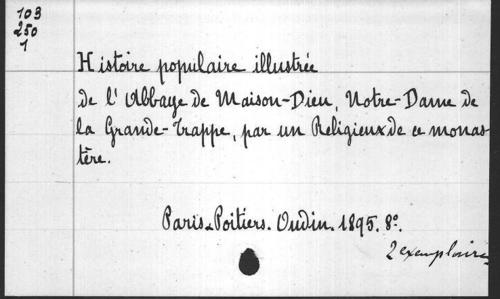 103
250
1
Histoire populaire illustrée
de l'Abbaye de Maison-Dieu, Notre-Dame de
la Grande-Trappe, par un Religieux de ce monas
tère.
Paris-Poitiers. Oudin. 1895. 8º.
2 exemplaires